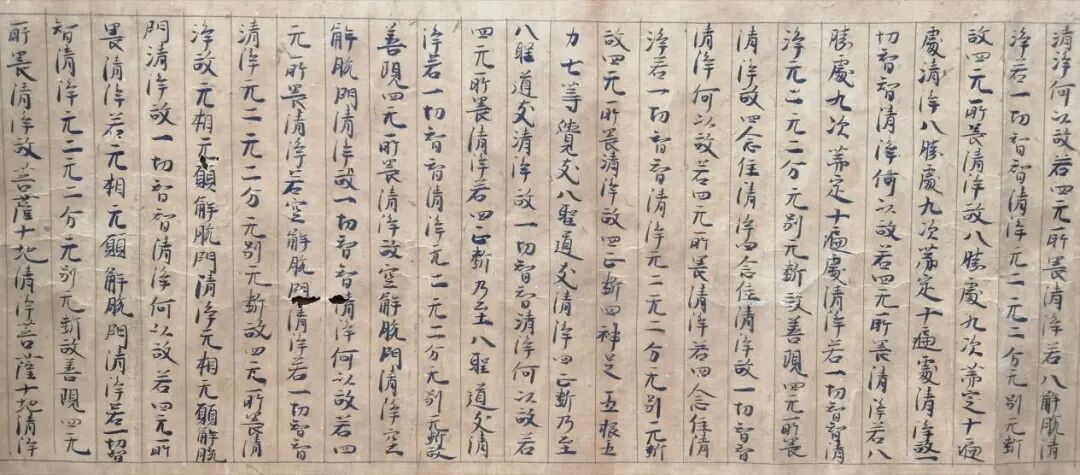 清淨何以故若四无所畏清淨若八解脫清
淨若一切智智清淨无二无二分无別无断
故四无所畏清淨故八勝處九次第定十遍
處清淨八勝處九次第定十遍處清淨故一
切智智清淨何以故若四无所畏清淨若八
勝處九次第定十遍處清淨若一切智智清
淨无二无二分无別无断故善現四无所畏
清淨故四念住清淨四念住清淨故一切智智
清淨何以故若四无所畏清淨若四念住清
淨若一切智智清淨无二无二分无別无断
故四无所畏清淨故四正断四神足五根五
力七等覺支八聖道支清淨四正断乃至
八聖道支清淨故一切智智清淨何以故若
四无所畏清淨若四正断乃至八聖道支清
淨若一切智智清淨无二无二分无別无断故
善現四无所畏清淨故空解脫門清淨空
解脫門清淨故一切智智清淨何以故若四
无所畏清淨若空解脫門清淨若一切智智
清淨无二无二分无別无断故四无所畏清
淨故无相无願解脫門清淨无相无願解脫
門清淨故一切智智清淨何以故若四无所
畏清淨若无相无願解脫門清淨若一切智
智清淨无二无二分无別无断故善現四无
所畏清淨故菩薩十地清淨菩薩十地清淨